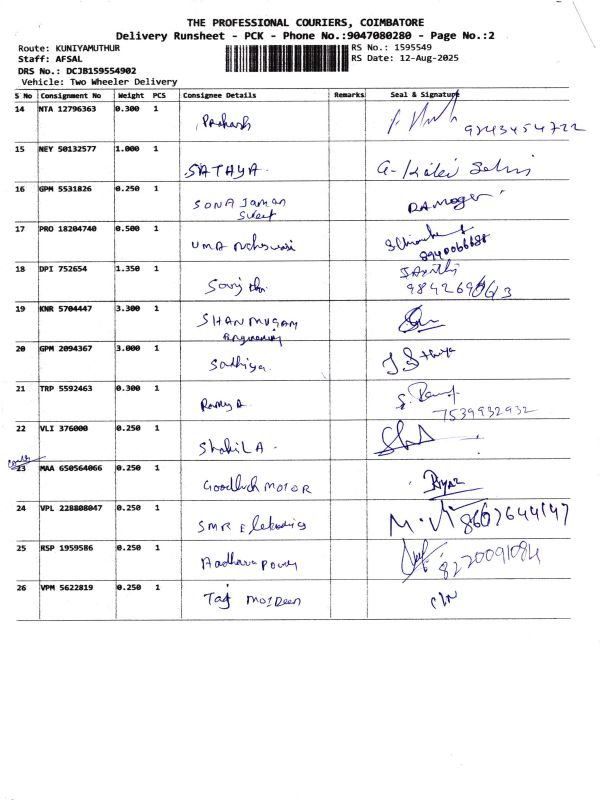 THE PROFESSIONAL COURIERS, COIMBATORE
Delivery Runsheet - PCK - Phone No.:9047080280 - Page No.:2
Route: KUNIYAMUTHUR
RS No.: 1595549
Staff: AFSAL
RS Date: 12-Aug-2025
DRS No.: DCJB159554902
Vehicle: Two Wheeler Delivery
S No Consignment No Weight PCS Consignee Details Remarks Seal & Signature
14 NTA 12796363 0.300 1 Prakash 9843454722
15 NEY 50132577 1.000 1 SATHYA. G-
16 GPM 5531826 0.250 1 SONA Jaman
Sweet
17 PRO 18204740 0.500 1 UMA
8940066688
18 DPI 752654 1.350 1
19 KNR 5704447 3.300 1 SHANMUGAM
Engineering
20 GPM 2094367 3.000 1 Sathiya.
21 TRP 5592463 0.300 1
7539932932
22 VLI 376000 0.250 1 ShakiLA.
23 MAA 650564066 0.250 1 Goodluck MOTOR Riyaz
24 VPL 228808047 0.250 1 SMR 8667644147
25 RSP 1959586 0.250 1 Aadhava 8220091084
26 VPM 5622819 0.250 1 Taj MOIDeen